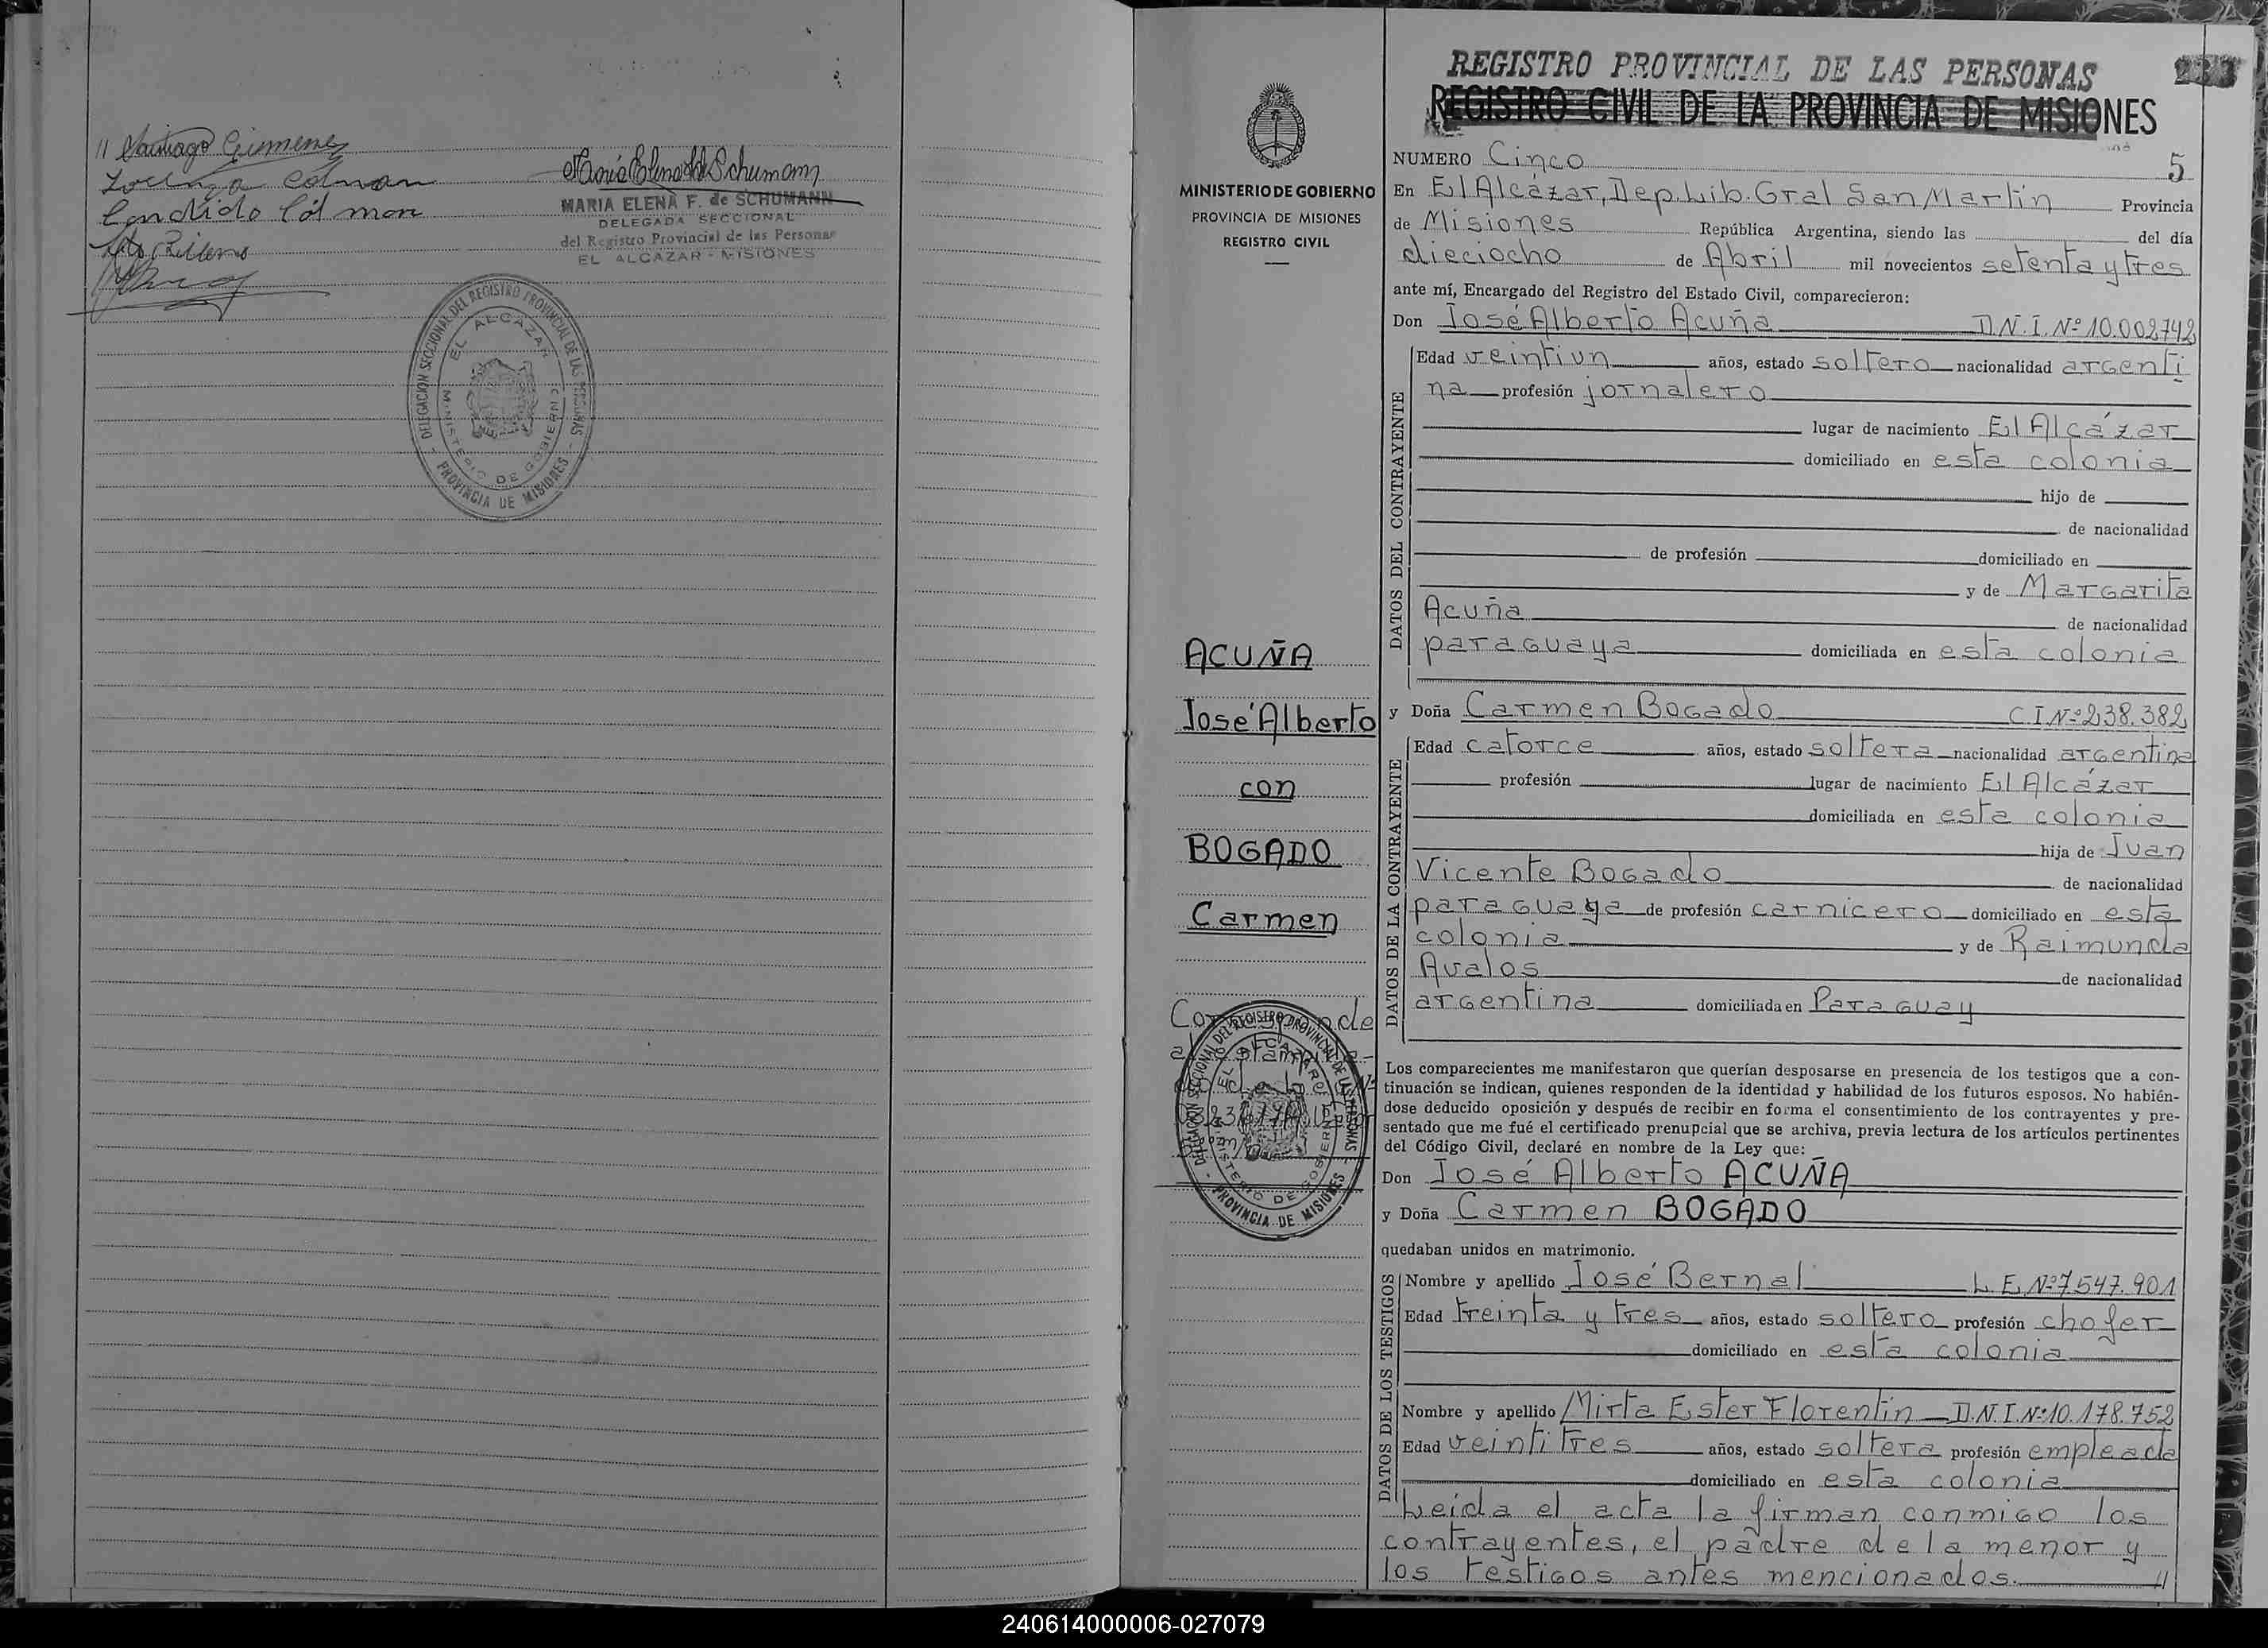 // Santiago Gimenez
Colman
Candido Colman
María Elena de Schumann
MARIA ELENA F. de SCHUMANN
DELEGADA SECCIONAL
del Registro Provincial de las Personas
EL ALCAZAR - MISIONES
DELEGACION SECCIONAL DEL REGISTRO PROVINCIAL DE LAS PERSONAS
EL ALCAZAR
MINISTERIO DE GOBIERNO
- PROVINCIA DE MISIONES -
MINISTERIO DE GOBIERNO
PROVINCIA DE MISIONES
REGISTRO CIVIL
ACUÑA
José Alberto
con
BOGADO
Carmen
Corresponde
DELEGACION SECCIONAL DEL REGISTRO PROVINCIAL DE LAS PERSONAS
EL ALCAZAR
MINISTERIO DE GOBIERNO
- PROVINCIA DE MISIONES -
REGISTRO PROVINCIAL DE LAS PERSONAS
REGISTRO CIVIL DE LA PROVINCIA DE MISIONES
NUMERO Cinco 5
En El Alcázar, Dep. Lib. Gral San Martín Provincia
de Misiones República Argentina, siendo las del día
dieciocho de Abril mil novecientos setenta y tres
ante mí, Encargado del Registro del Estado Civil, comparecieron:
Don José Alberto Acuña D.N.I. Nº 10.002.742
DATOS DEL CONTRAYENTE
Edad veintiun años, estado soltero nacionalidad argenti
na profesión jornalero
lugar de nacimiento El Alcázar
domiciliado en esta colonia
hijo de
de nacionalidad
de profesión domiciliado en
y de Margarita
Acuña de nacionalidad
paraguaya domiciliada en esta colonia
y Doña Carmen Bogado C.I. Nº 238.382
DATOS DE LA CONTRAYENTE
Edad catorce años, estado soltera nacionalidad argentina
profesión lugar de nacimiento El Alcázar
domiciliada en esta colonia
hija de Juan
Vicente Bogado de nacionalidad
paraguaya de profesión carnicero domiciliado en esta
colonia y de Raimunda
Avalos de nacionalidad
argentina domiciliada en Paraguay
Los comparecientes me manifestaron que querían desposarse en presencia de los testigos que a con-
tinuación se indican, quienes responden de la identidad y habilidad de los futuros esposos. No habién-
dose deducido oposición y después de recibir en forma el consentimiento de los contrayentes y pre-
sentado que me fué el certificado prenupcial que se archiva, previa lectura de los artículos pertinentes
del Código Civil, declaré en nombre de la Ley que:
Don José Alberto ACUÑA
y Doña Carmen BOGADO
quedaban unidos en matrimonio.
DATOS DE LOS TESTIGOS
Nombre y apellido José Bernal L.E. Nº 7.547.901
Edad treinta y tres años, estado soltero profesión chofer
domiciliado en esta colonia
Nombre y apellido Mirta Ester Florentin D.N.I. Nº 10.178.752
Edad veintitres años, estado soltera profesión empleada
domiciliado en esta colonia
Leida el acta la firman conmigo los
contrayentes, el padre de la menor y
los testigos antes mencionados. //
240614000006-027079